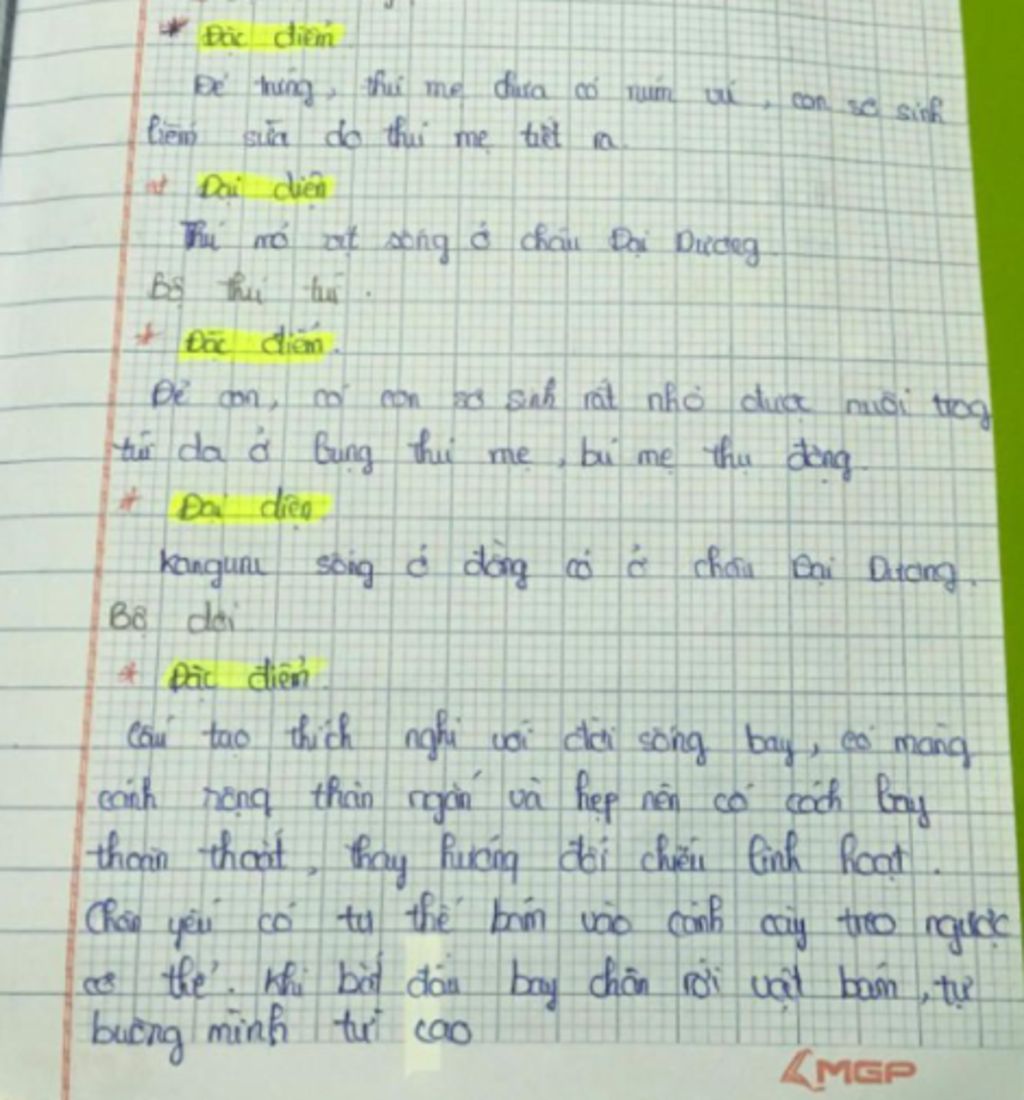 * Đặc điểm
Đẻ trứng, thú mẹ chưa có núm vú, con sơ sinh
liếm sữa do thú mẹ tiết ra.
* Đại diện
Thú mỏ vịt sống ở châu Đại Dương
Bộ thú túi.
* Đặc điểm.
Đẻ con, có con sơ sinh rất nhỏ được nuôi trog
túi da ở bụng thú mẹ, bú mẹ thụ động.
* Đại diện
Kanguru sống ở đồng cỏ ở châu Đại Dương.
Bộ dơi
* Đặc điểm.
Cấu tạo thích nghi với đời sống bay, có màng
cánh rộng thân ngắn và hẹp nên có cách bay
thoăn thoắt, thay hướng đổi chiều linh hoạt.
Chân yếu có tư thế bám vào cành cây treo ngược
cơ thể. Khi bắt đầu bay chân rời vật bám, tự
buông mình từ cao
MGP